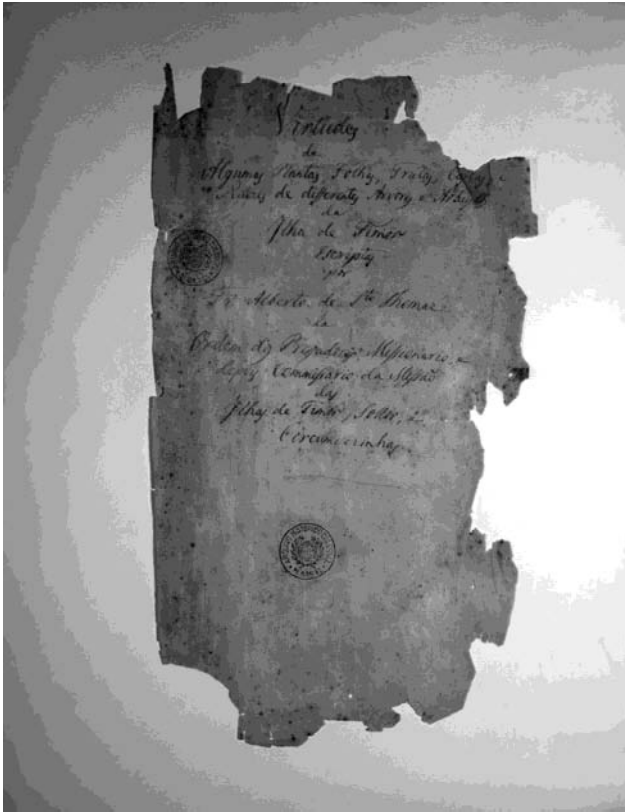 Virtudes
de
Algumas Plantas, Folhas, Frutas, Cascas, e
Raizes de differentes Arvores e Arbustos
da
Ilha de Timor
Escriptas
por
Fr. Alberto de Sto. Thomaz
da
Ordem dos Pregadores Missionario, e
depois Commissario da Missão
das
Ilhas de Timor, Solor, e
Circumvezinhas.